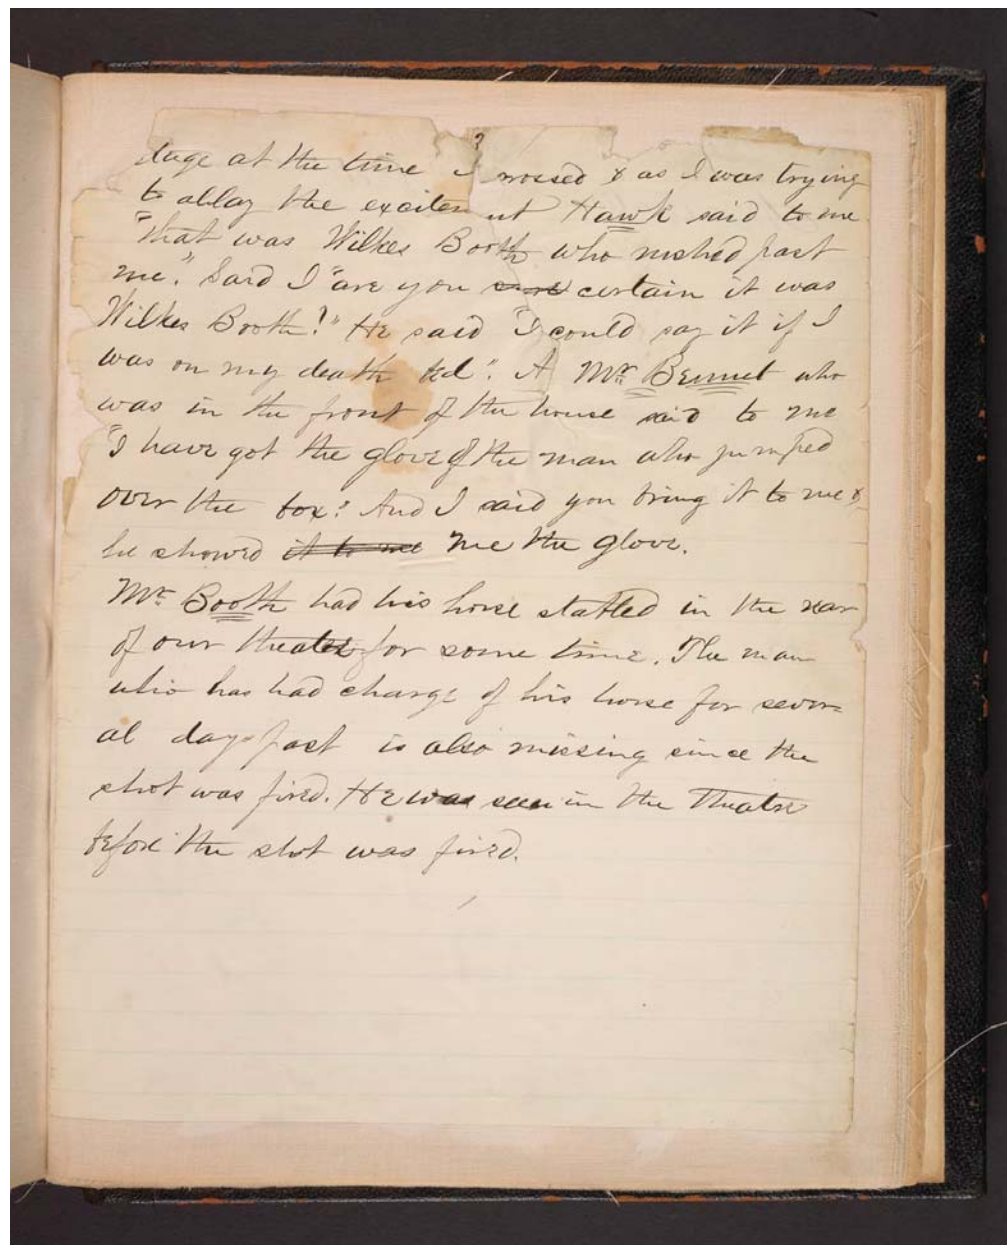 stage at the time I crossed & as I was trying
to allay the excitement Hawk said to me
"That was Wilkes Booth who rushed past
me." Said I "are you sure certain it was
Wilkes Booth?" He said "I could say it if I
was on my death bed". A Mr. Bennet who
was in the front of the house said to me
"I have got the glove of the man who jumped
over the box". And I said you bring it to me &
he showed it to me me the glove.
Mr. Booth had his horse stabled in the rear
of our theatre for some time. The man
who has had charge of his horse for sever=
al days past is also missing since the
shot was fired. He was seen in the theatre
before the shot was fired.